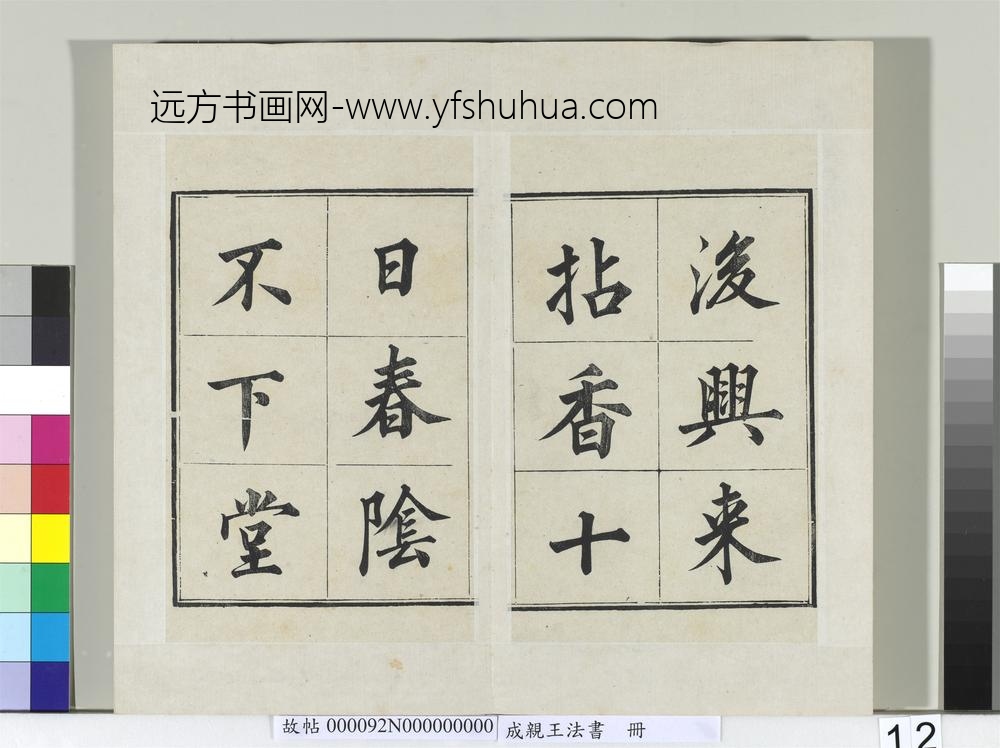 远方书画网-www.yfshuhua.com
後興来
拈香十
日春陰
不下堂
故帖 000092N000000000 成親王法書 冊
12